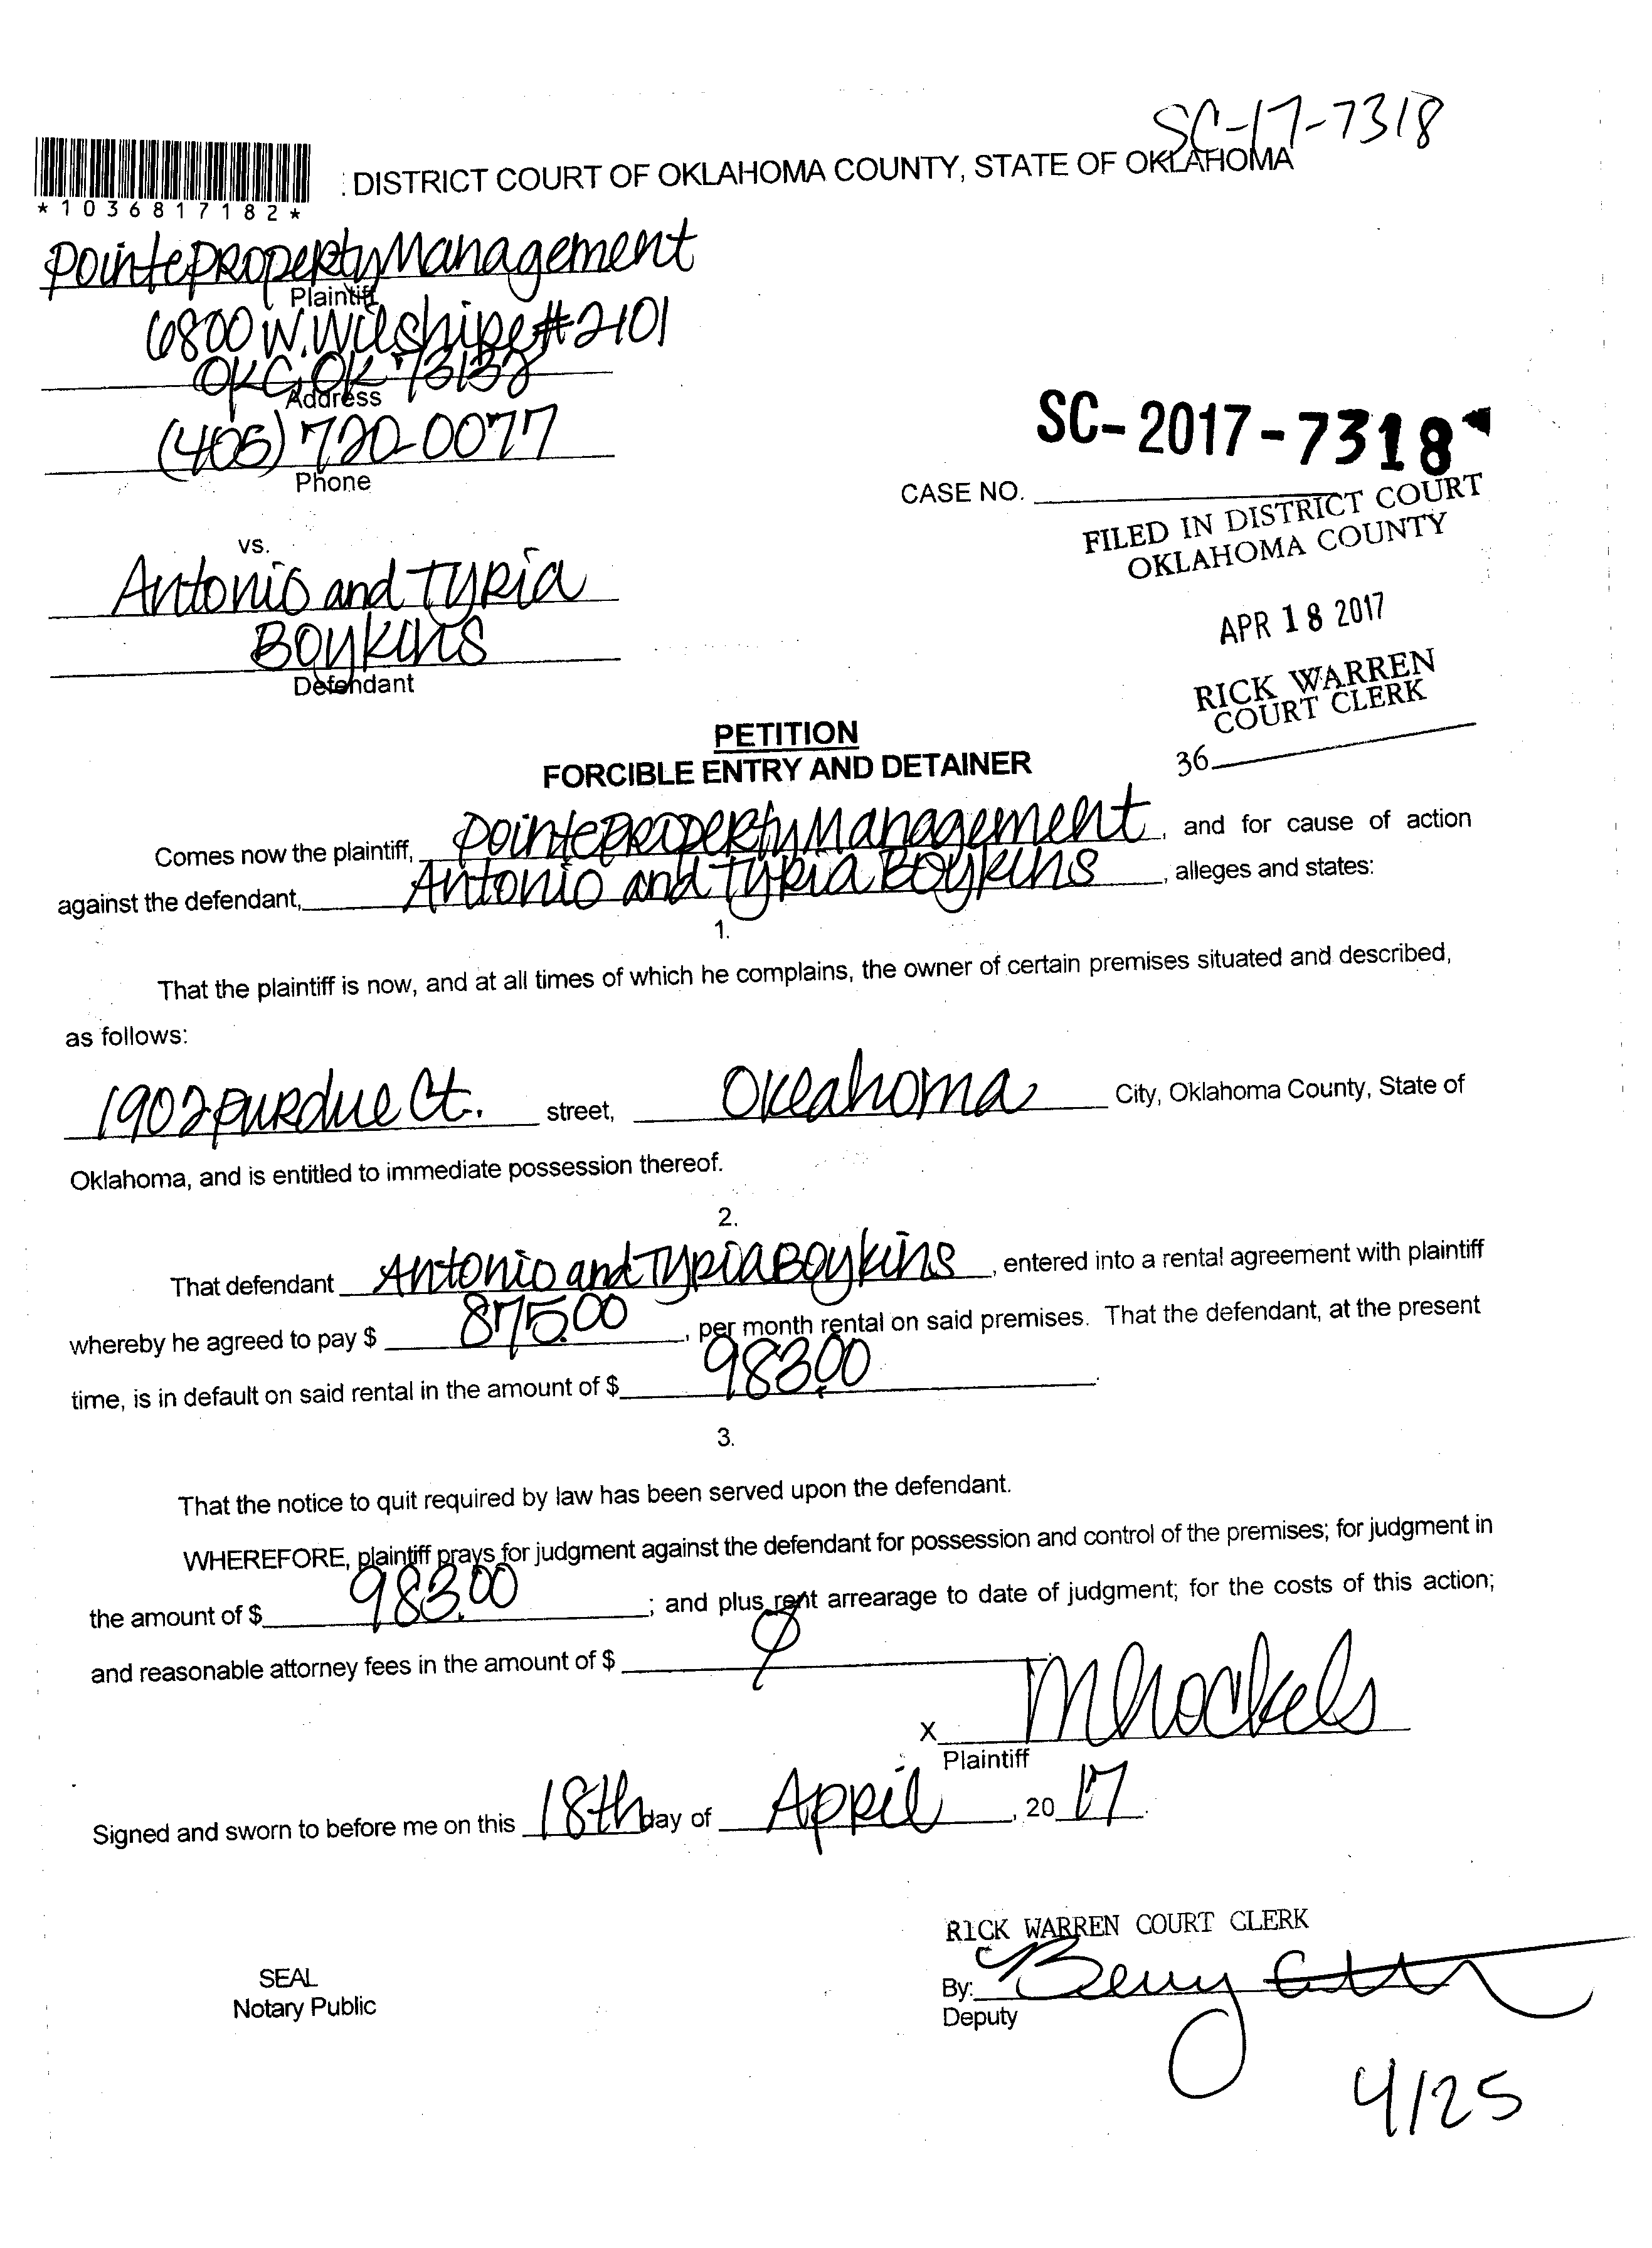 SC-17-7318
: DISTRICT COURT OF OKLAHOMA COUNTY, STATE OF OKLAHOMA
*1036817182*
Pointe Property Management
Plaintiff
6800 W. Wilshire #2101
OKC, OK 73132
Address
(405) 720-0077
Phone
SC-2017-7318
CASE NO.
FILED IN DISTRICT COURT
OKLAHOMA COUNTY
vs.
Antonio and Tyria
Boykins
Defendant
APR 18 2017
RICK WARREN
COURT CLERK
36
PETITION
FORCIBLE ENTRY AND DETAINER
Comes now the plaintiff, Pointe Property Management, and for cause of action
against the defendant, Antonio and Tyria Boykins, alleges and states:
1.
That the plaintiff is now, and at all times of which he complains, the owner of certain premises situated and described,
as follows:
1902 Purdue Ct. street, Oklahoma City, Oklahoma County, State of
Oklahoma, and is entitled to immediate possession thereof.
2.
That defendant Antonio and Tyria Boykins, entered into a rental agreement with plaintiff
whereby he agreed to pay $ 875.00, per month rental on said premises. That the defendant, at the present
time, is in default on said rental in the amount of $ 983.00.
3.
That the notice to quit required by law has been served upon the defendant.
WHEREFORE, plaintiff prays for judgment against the defendant for possession and control of the premises; for judgment in
the amount of $ 983.00; and plus rent arrearage to date of judgment; for the costs of this action;
and reasonable attorney fees in the amount of $
X
Plaintiff
Signed and sworn to before me on this 18th day of April, 20 17.
RICK WARREN COURT CLERK
SEAL
Notary Public
By:
Deputy
4/25